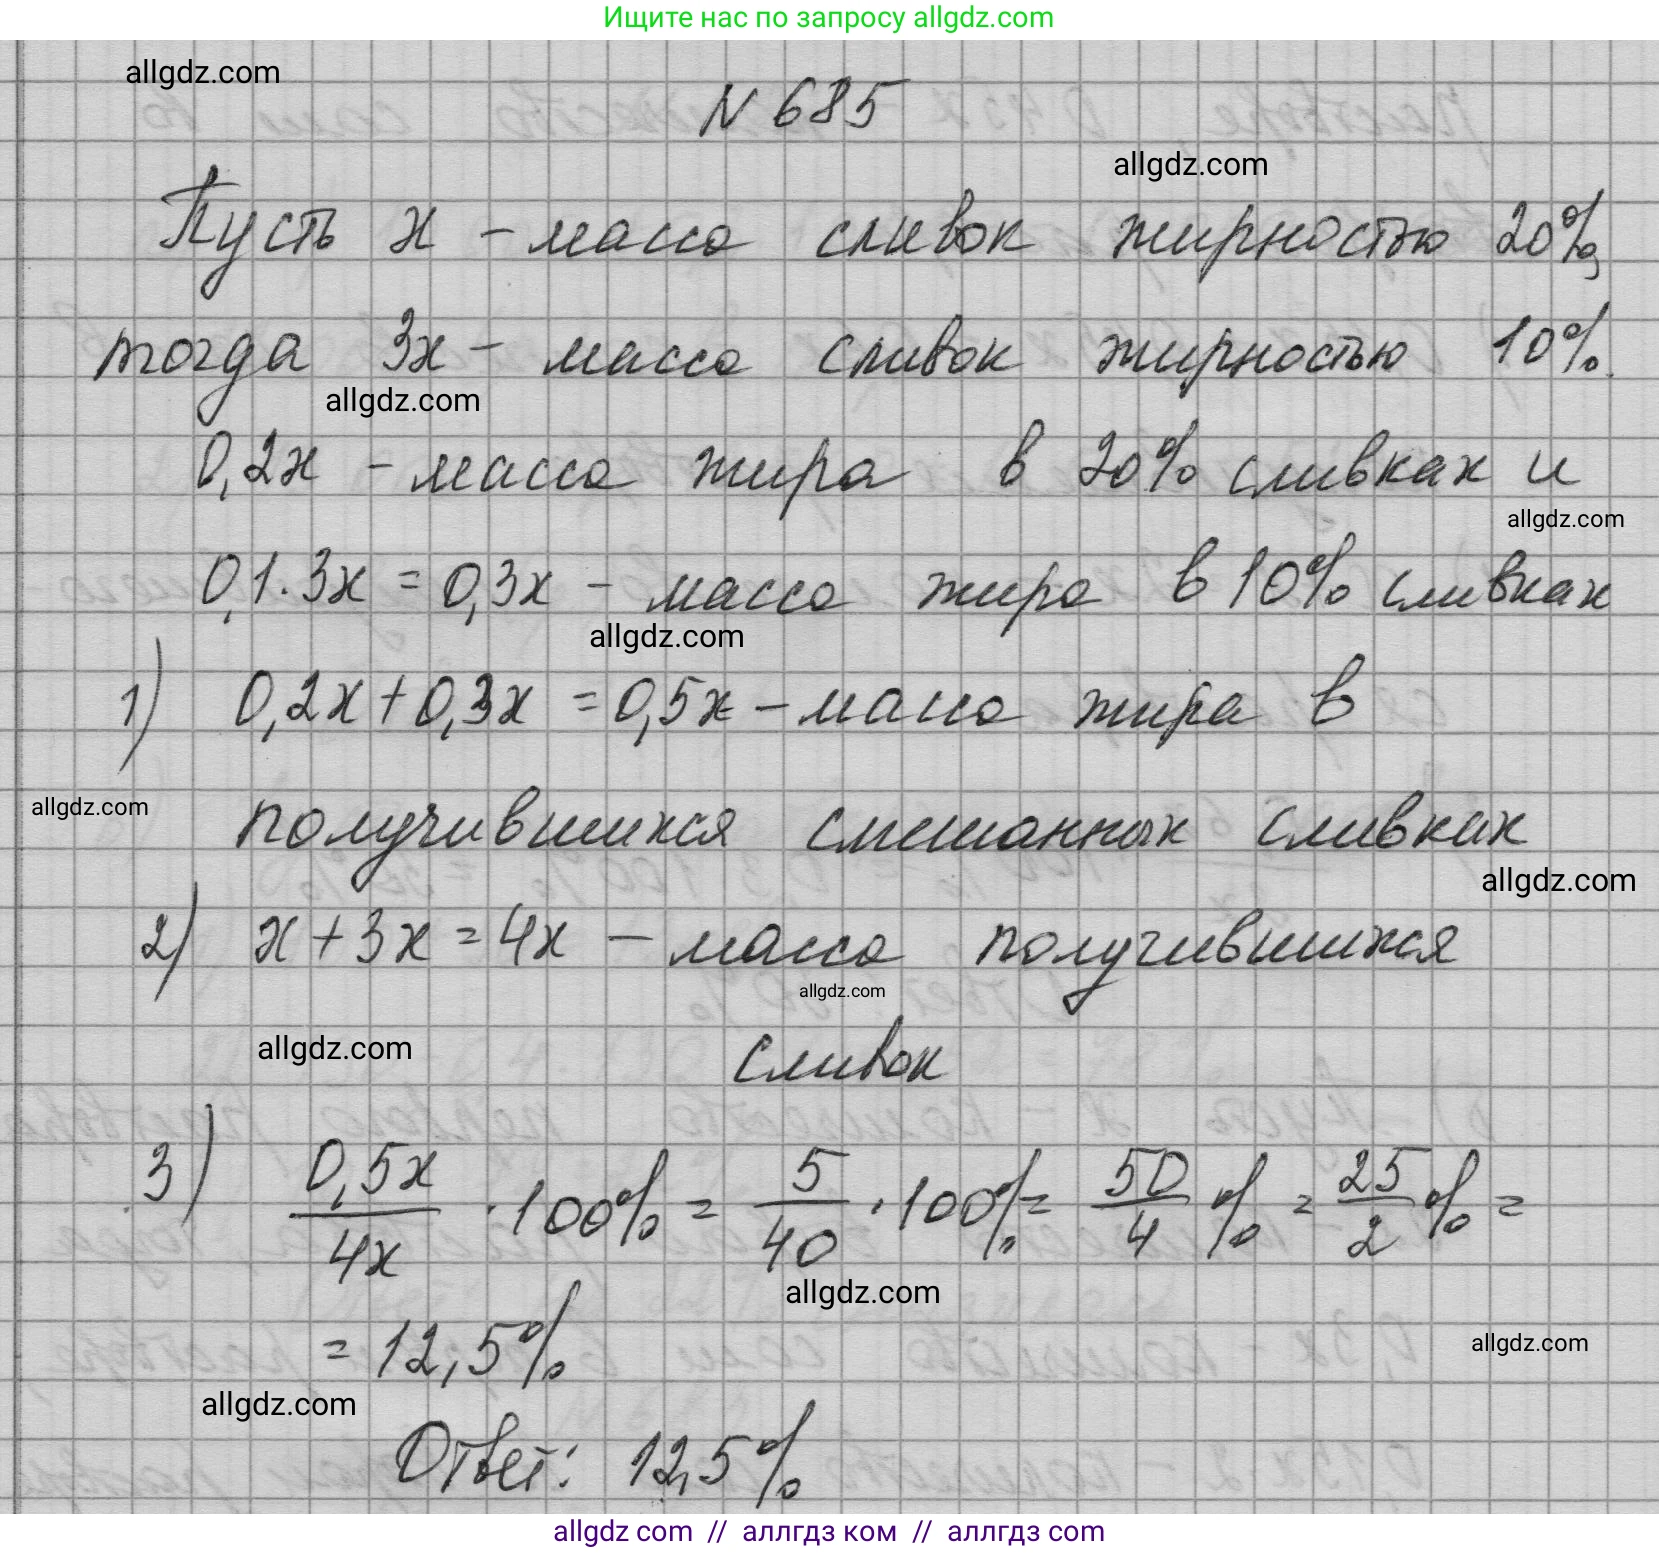 Ищите нас по запросу allgdz.com
allgdz.com
N 685
allgdz.com
Пусть x - масса сливок жирностью 20%,
тогда 3x - масса сливок жирностью 10%.
allgdz.com
0,2x - масса жира в 20% сливках и
allgdz.com
0,1·3x = 0,3x - масса жира в 10% сливках
allgdz.com
1) 0,2x + 0,3x = 0,5x - масса жира в
allgdz.com
получившихся смешанных сливках
allgdz.com
2) x + 3x = 4x - масса получившихся
allgdz.com
сливок
allgdz.com
3) 0,5x/4x · 100% = 5/40 · 100% = 50/4 % = 25/2 % =
allgdz.com
= 12,5%
allgdz.com
allgdz.com
Ответ: 12,5%
allgdz com // аллгдз ком // аллгдз com